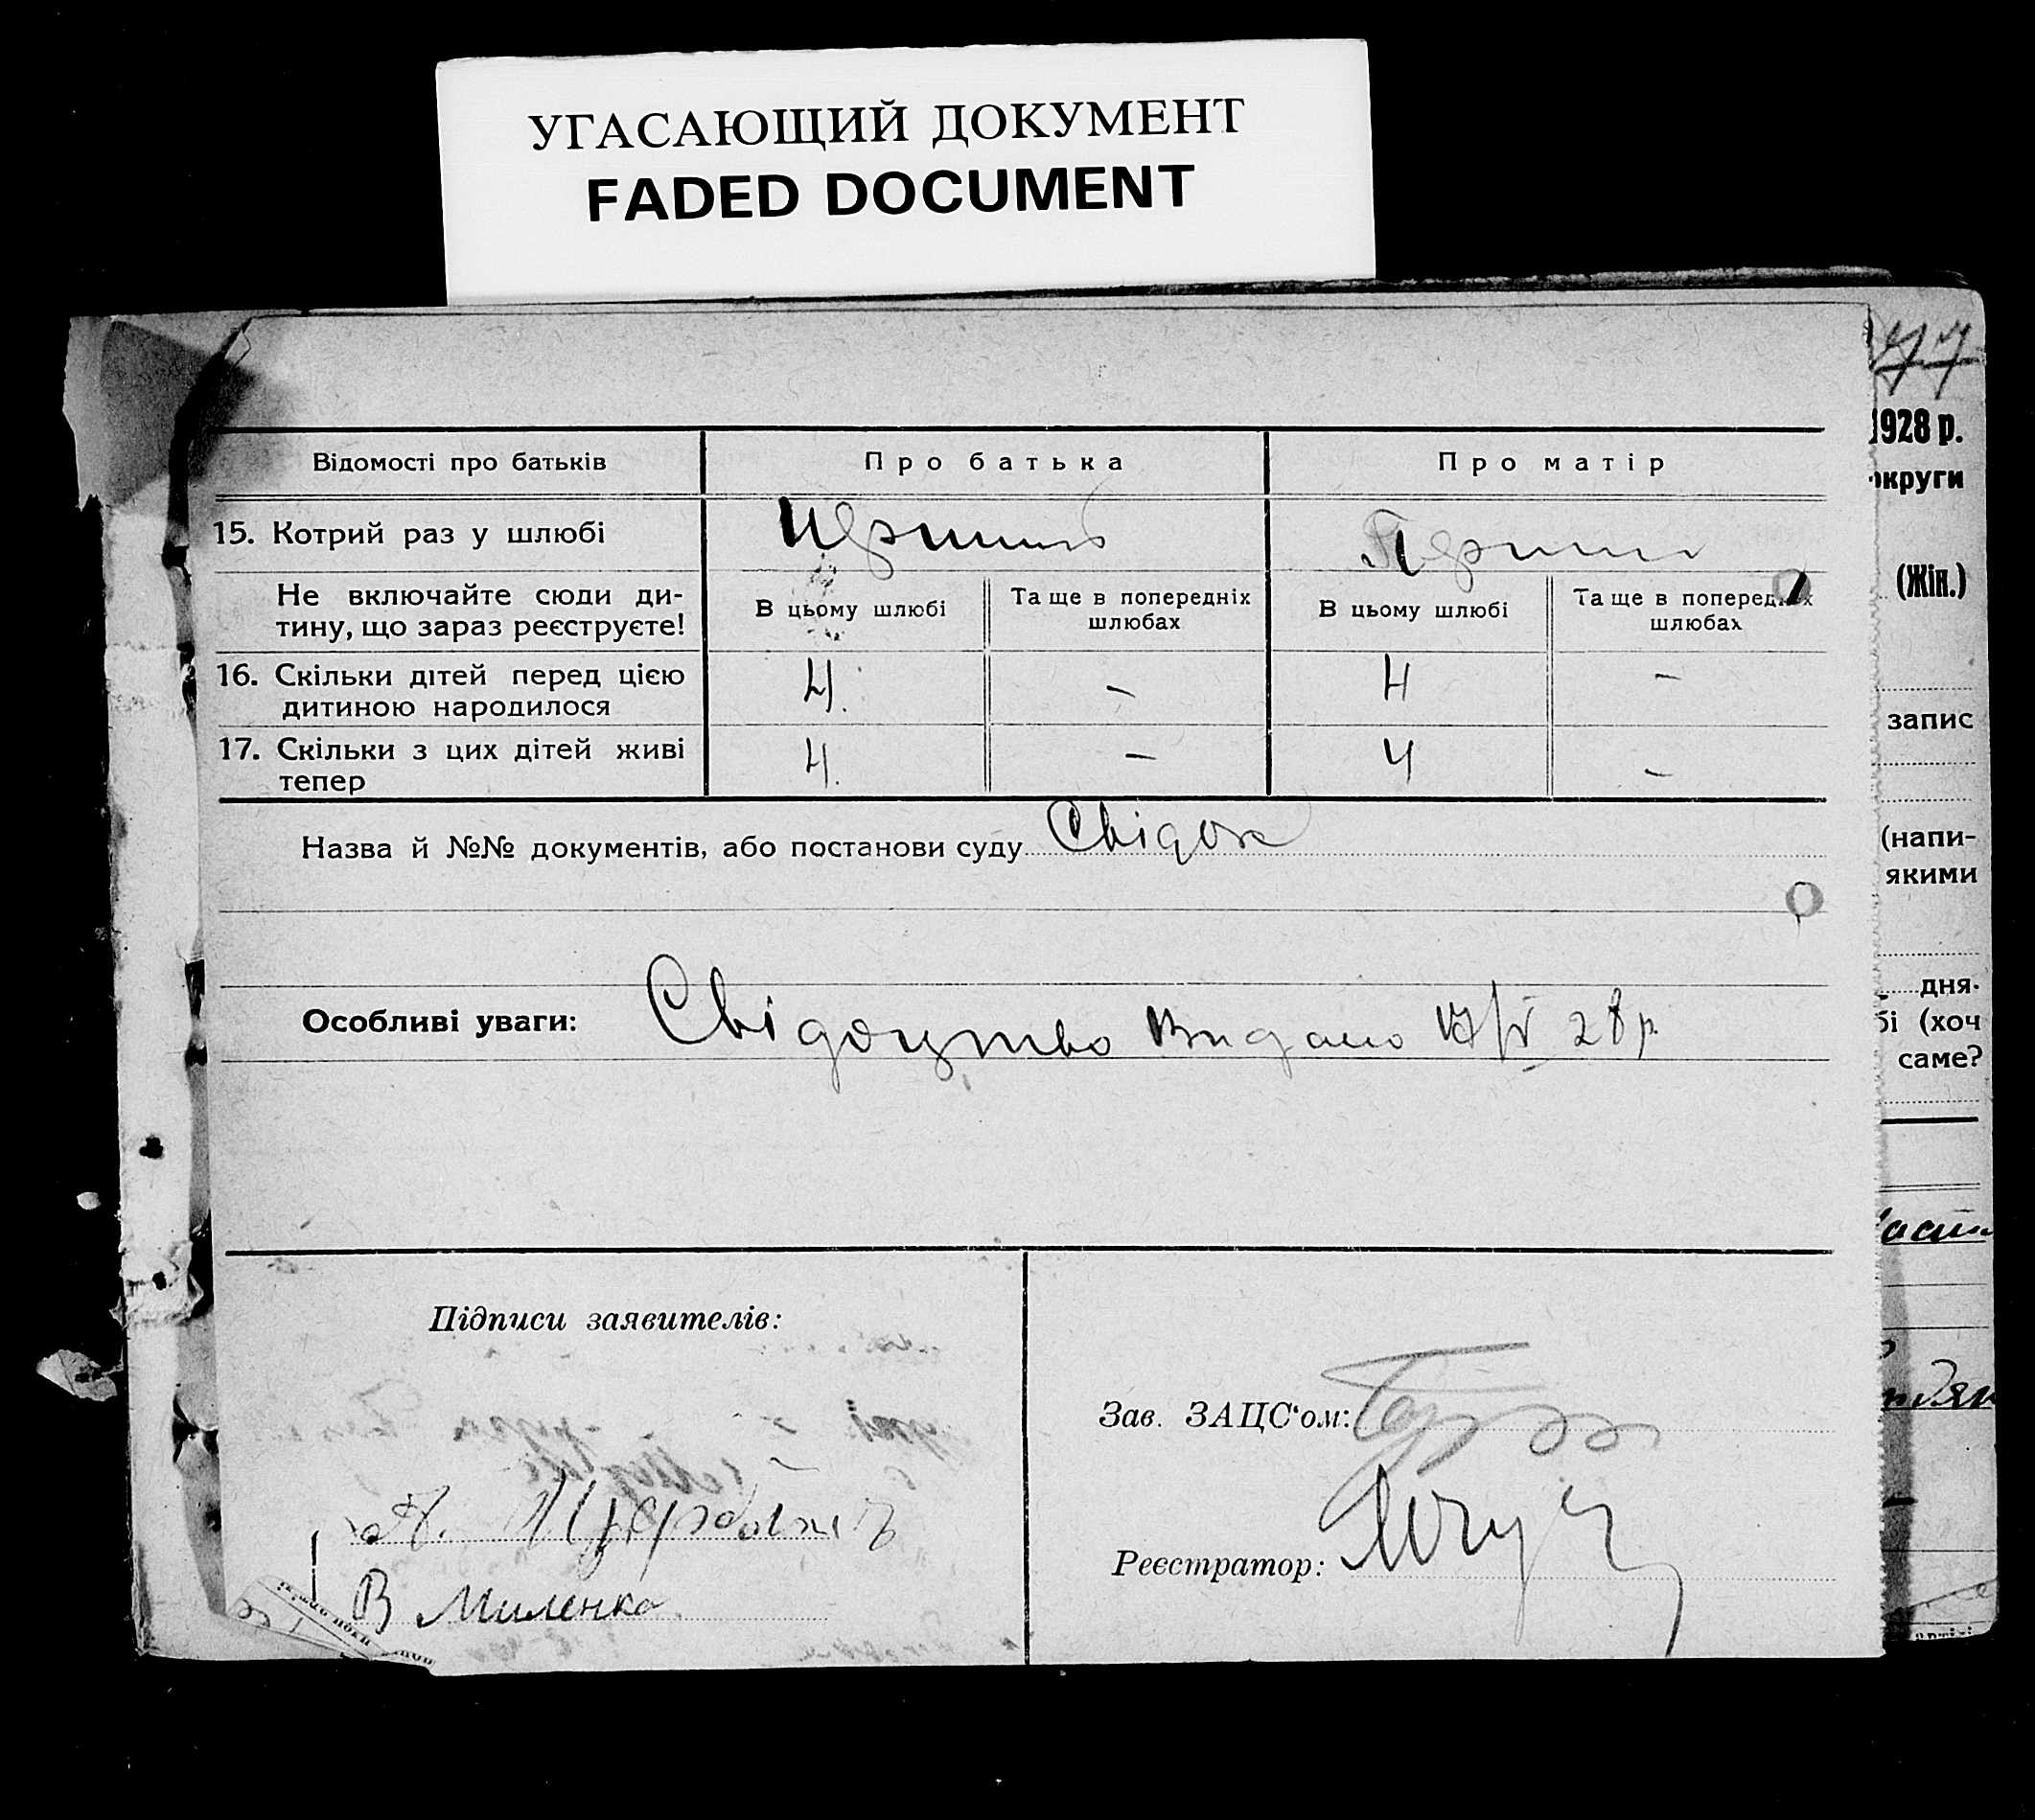 УГАСАЮЩИЙ ДОКУМЕНТ
FADED DOCUMENT
1928 р.
округи
(Жін.)
запис
(напи-
якими
дня.
бі (хоч
саме?
Відомості про батьків Про батька Про матір
15. Котрий раз у шлюбі
Не включайте сюди ди-
тину, що зараз реєструєте!
В цьому шлюбі Та ще в попередніх шлюбах В цьому шлюбі Та ще в попередніх шлюбах
16. Скільки дітей перед цією
дитиною народилося 4. – 4 –
17. Скільки з цих дітей живі
тепер 4. – 4 –
Назва й №№ документів, або постанови суду Свідок
Особливі уваги: Свідоцтво Видано 28 р.
Підписи заявителів:
В Миленко
Зав. ЗАЦС'ом:
Реєстратор: